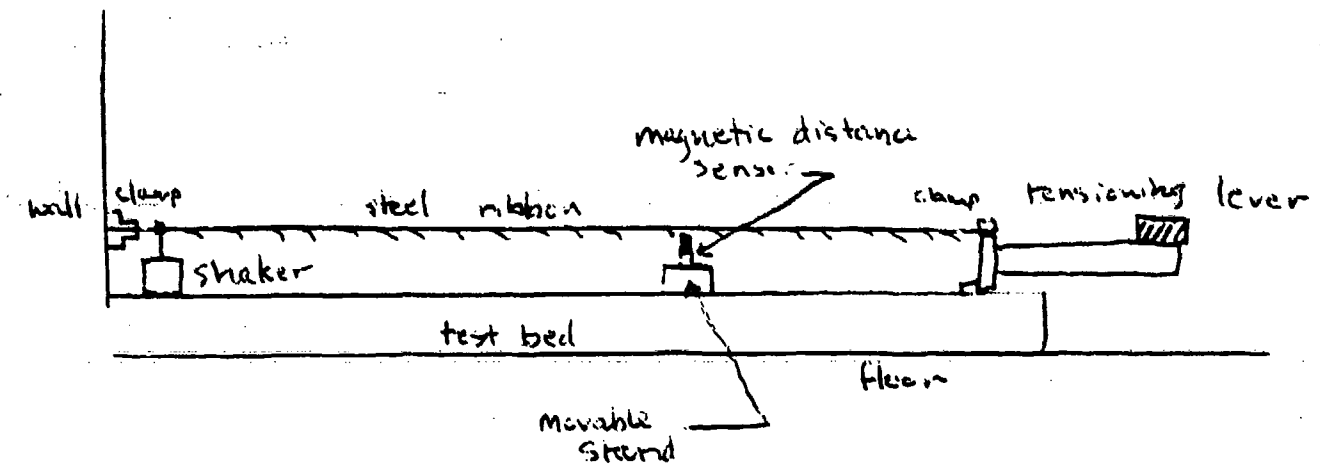 magnetic distance
sensor
wall
clamp
steel ribbon
clamp
tensioning lever
shaker
test bed
floor
movable
stand